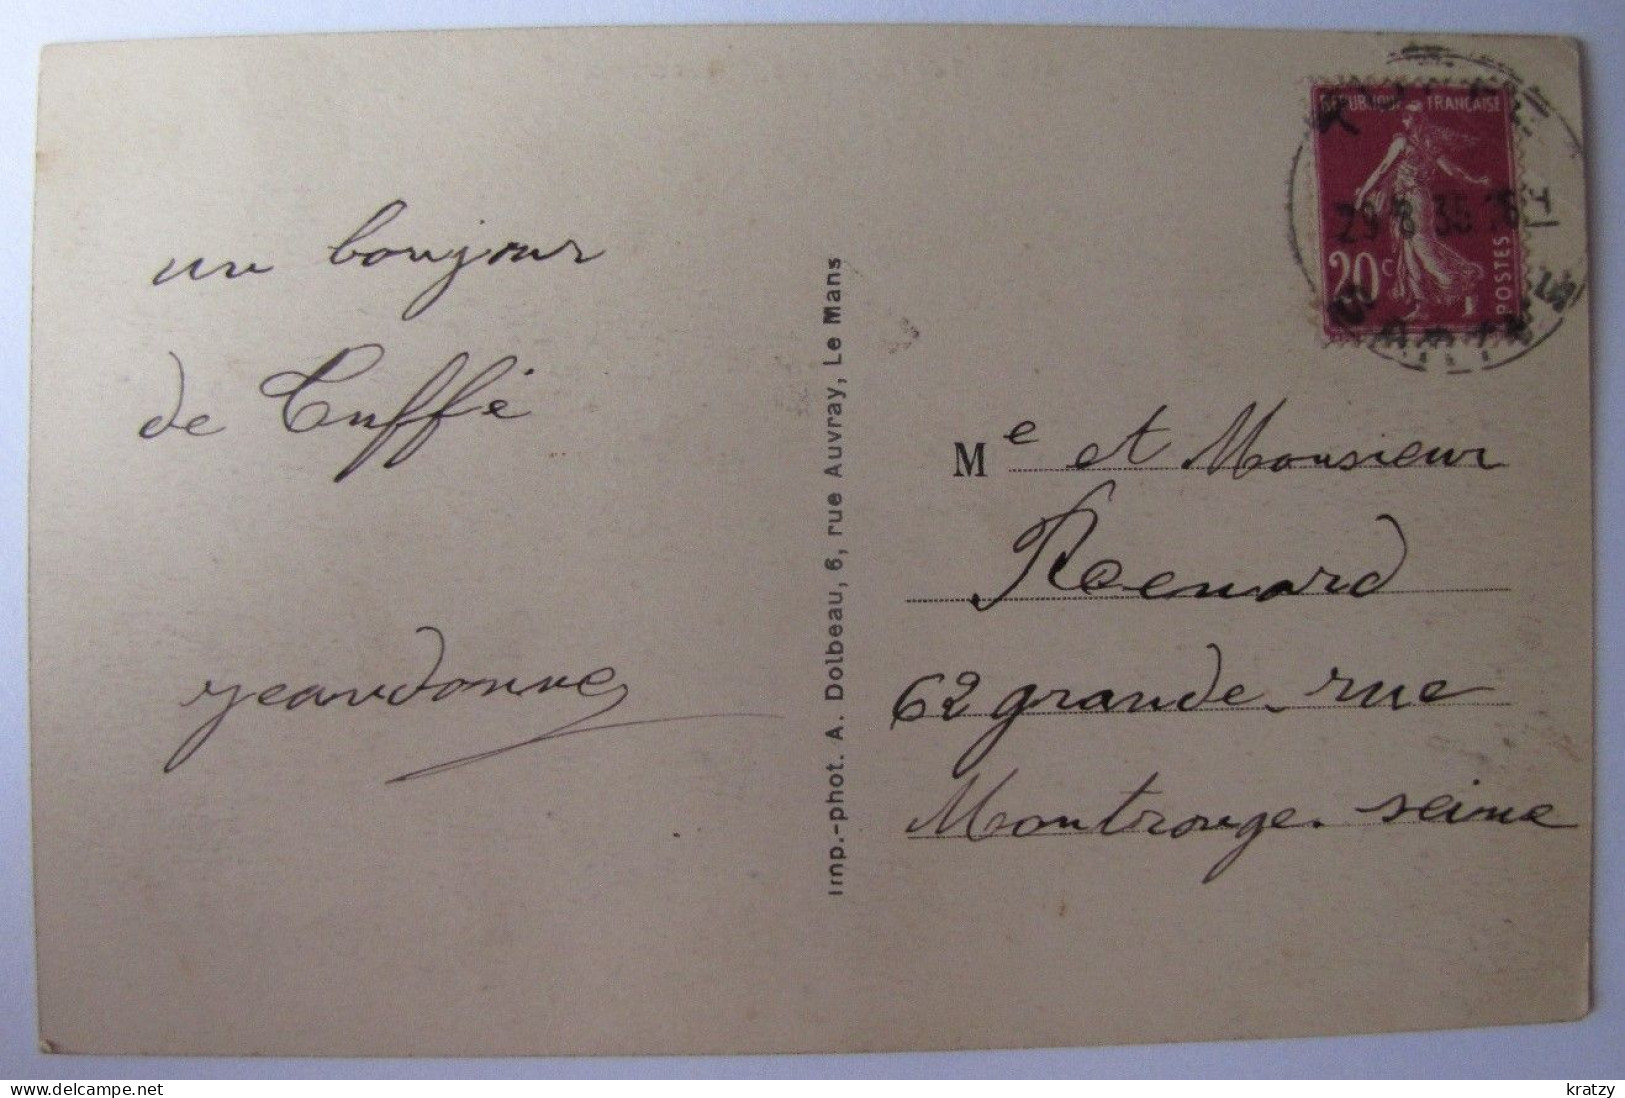 un bonjour
de Tuffé
Jeandonne
Imp.-phot. A. Dolbeau, 6, rue Auvray, Le Mans
RÉPUBLIQUE FRANÇAISE
20c
POSTES
29-8 35
Me et Monsieur
Renard
62 grande rue
Montrouge. seine
delcampe.net
kratzy